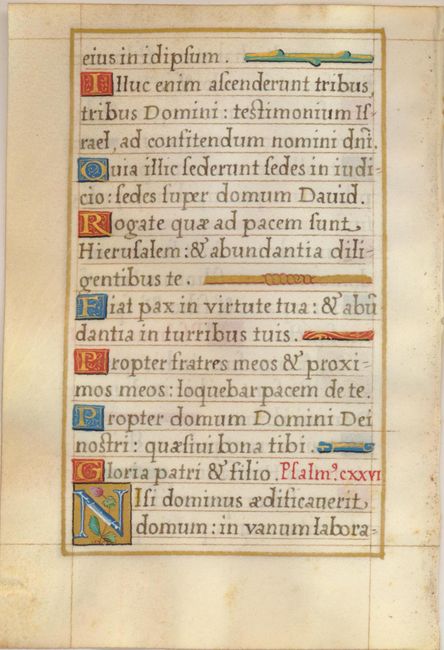 eius in idipsum.
Illuc enim ascenderunt tribus,
tribus Domini: testimonium Is
rael, ad confitendum nomini dñi.
Quia illic sederunt sedes in iudi-
cio: sedes super domum Dauid.
Rogate quæ ad pacem sunt
Hierusalem: & abundantia dili-
gentibus te.
Fiat pax in virtute tua: & abū
dantia in turribus tuis.
Propter fratres meos & proxi-
mos meos: loquebar pacem de te.
Propter domum Domini Dei
nostri: quæsiui bona tibi.
Gloria patri & filio. Psalm⁹. cxxvi
Nisi dominus ædificauerit
domum: in vanum labora-